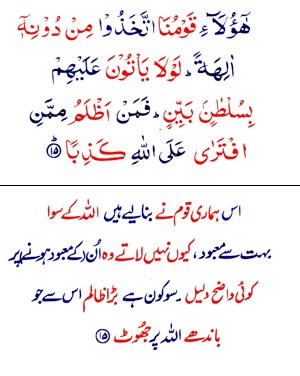 هٰٓؤُلَآءِ قَوْمُنَا اتَّخَذُوْا مِنْ دُوْنِهٖٓ
اٰلِهَةً ؕ لَوْلَا يَاْتُوْنَ عَلَيْهِمْ
بِسُلْطٰنٍۭ بَيِّنٍ ؕ فَمَنْ اَظْلَمُ مِمَّنِ
افْتَرٰى عَلَى اللّٰهِ كَذِبًا ؕ ﴿۱۵﴾
اس ہماری قوم نے بنالیے ہیں اللہ کے سوا
بہت سے معبود، کیوں نہیں لاتے وہ اُن (کے معبود ہونے) پر
کوئی واضح دلیل ۔ سو کون ہے بڑا ظالم اس سے جو
باندھے اللہ پر جھُوٹ ﴿۱۵﴾